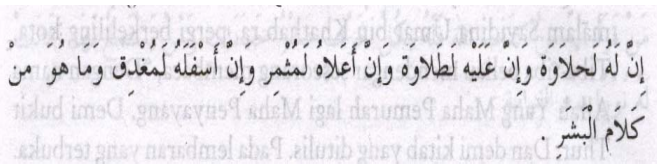 إِنَّ لَهُ لَحَلَاوَةً وَإِنَّ عَلَيْهِ لَطَلَاوَةً وَإِنَّ أَعْلَاهُ لَمُثْمِرٌ وَإِنَّ أَسْفَلَهُ لَمُغْدِقٌ وَمَا هُوَ مِنْ
كَلَامِ الْبَشَرِ .